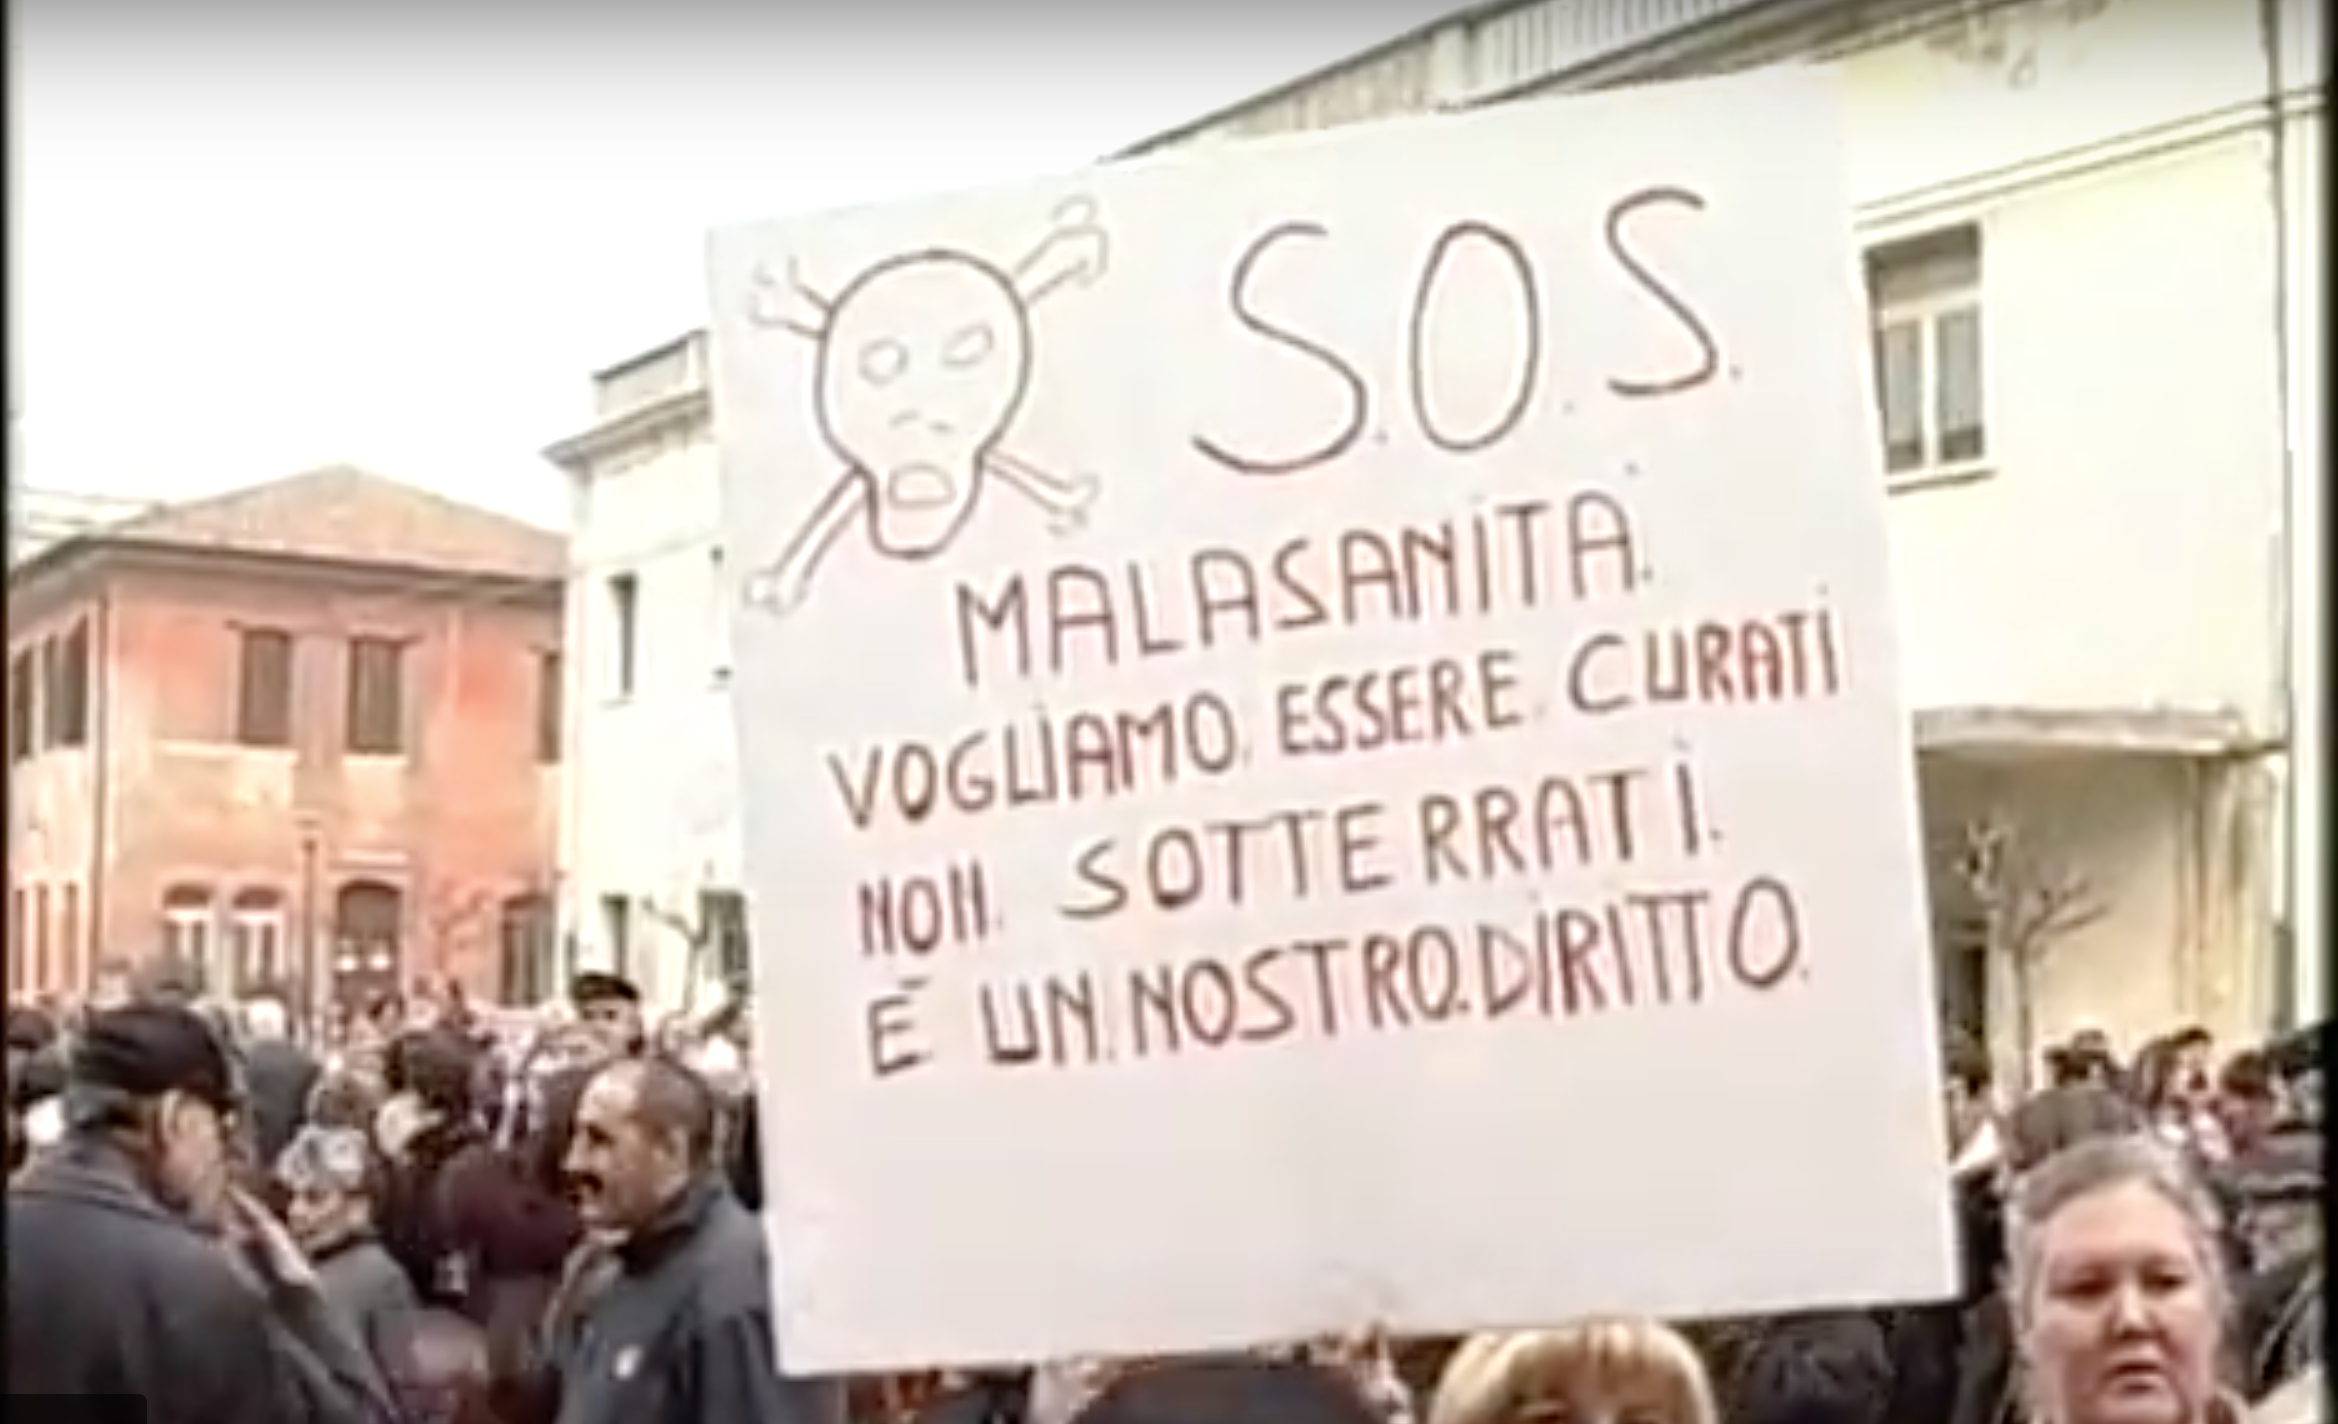 S.O.S.
MALASANITÀ.
VOGLIAMO. ESSERE. CURATI
NON. SOTTERRATI.
É UN. NOSTRO. DIRITTO.